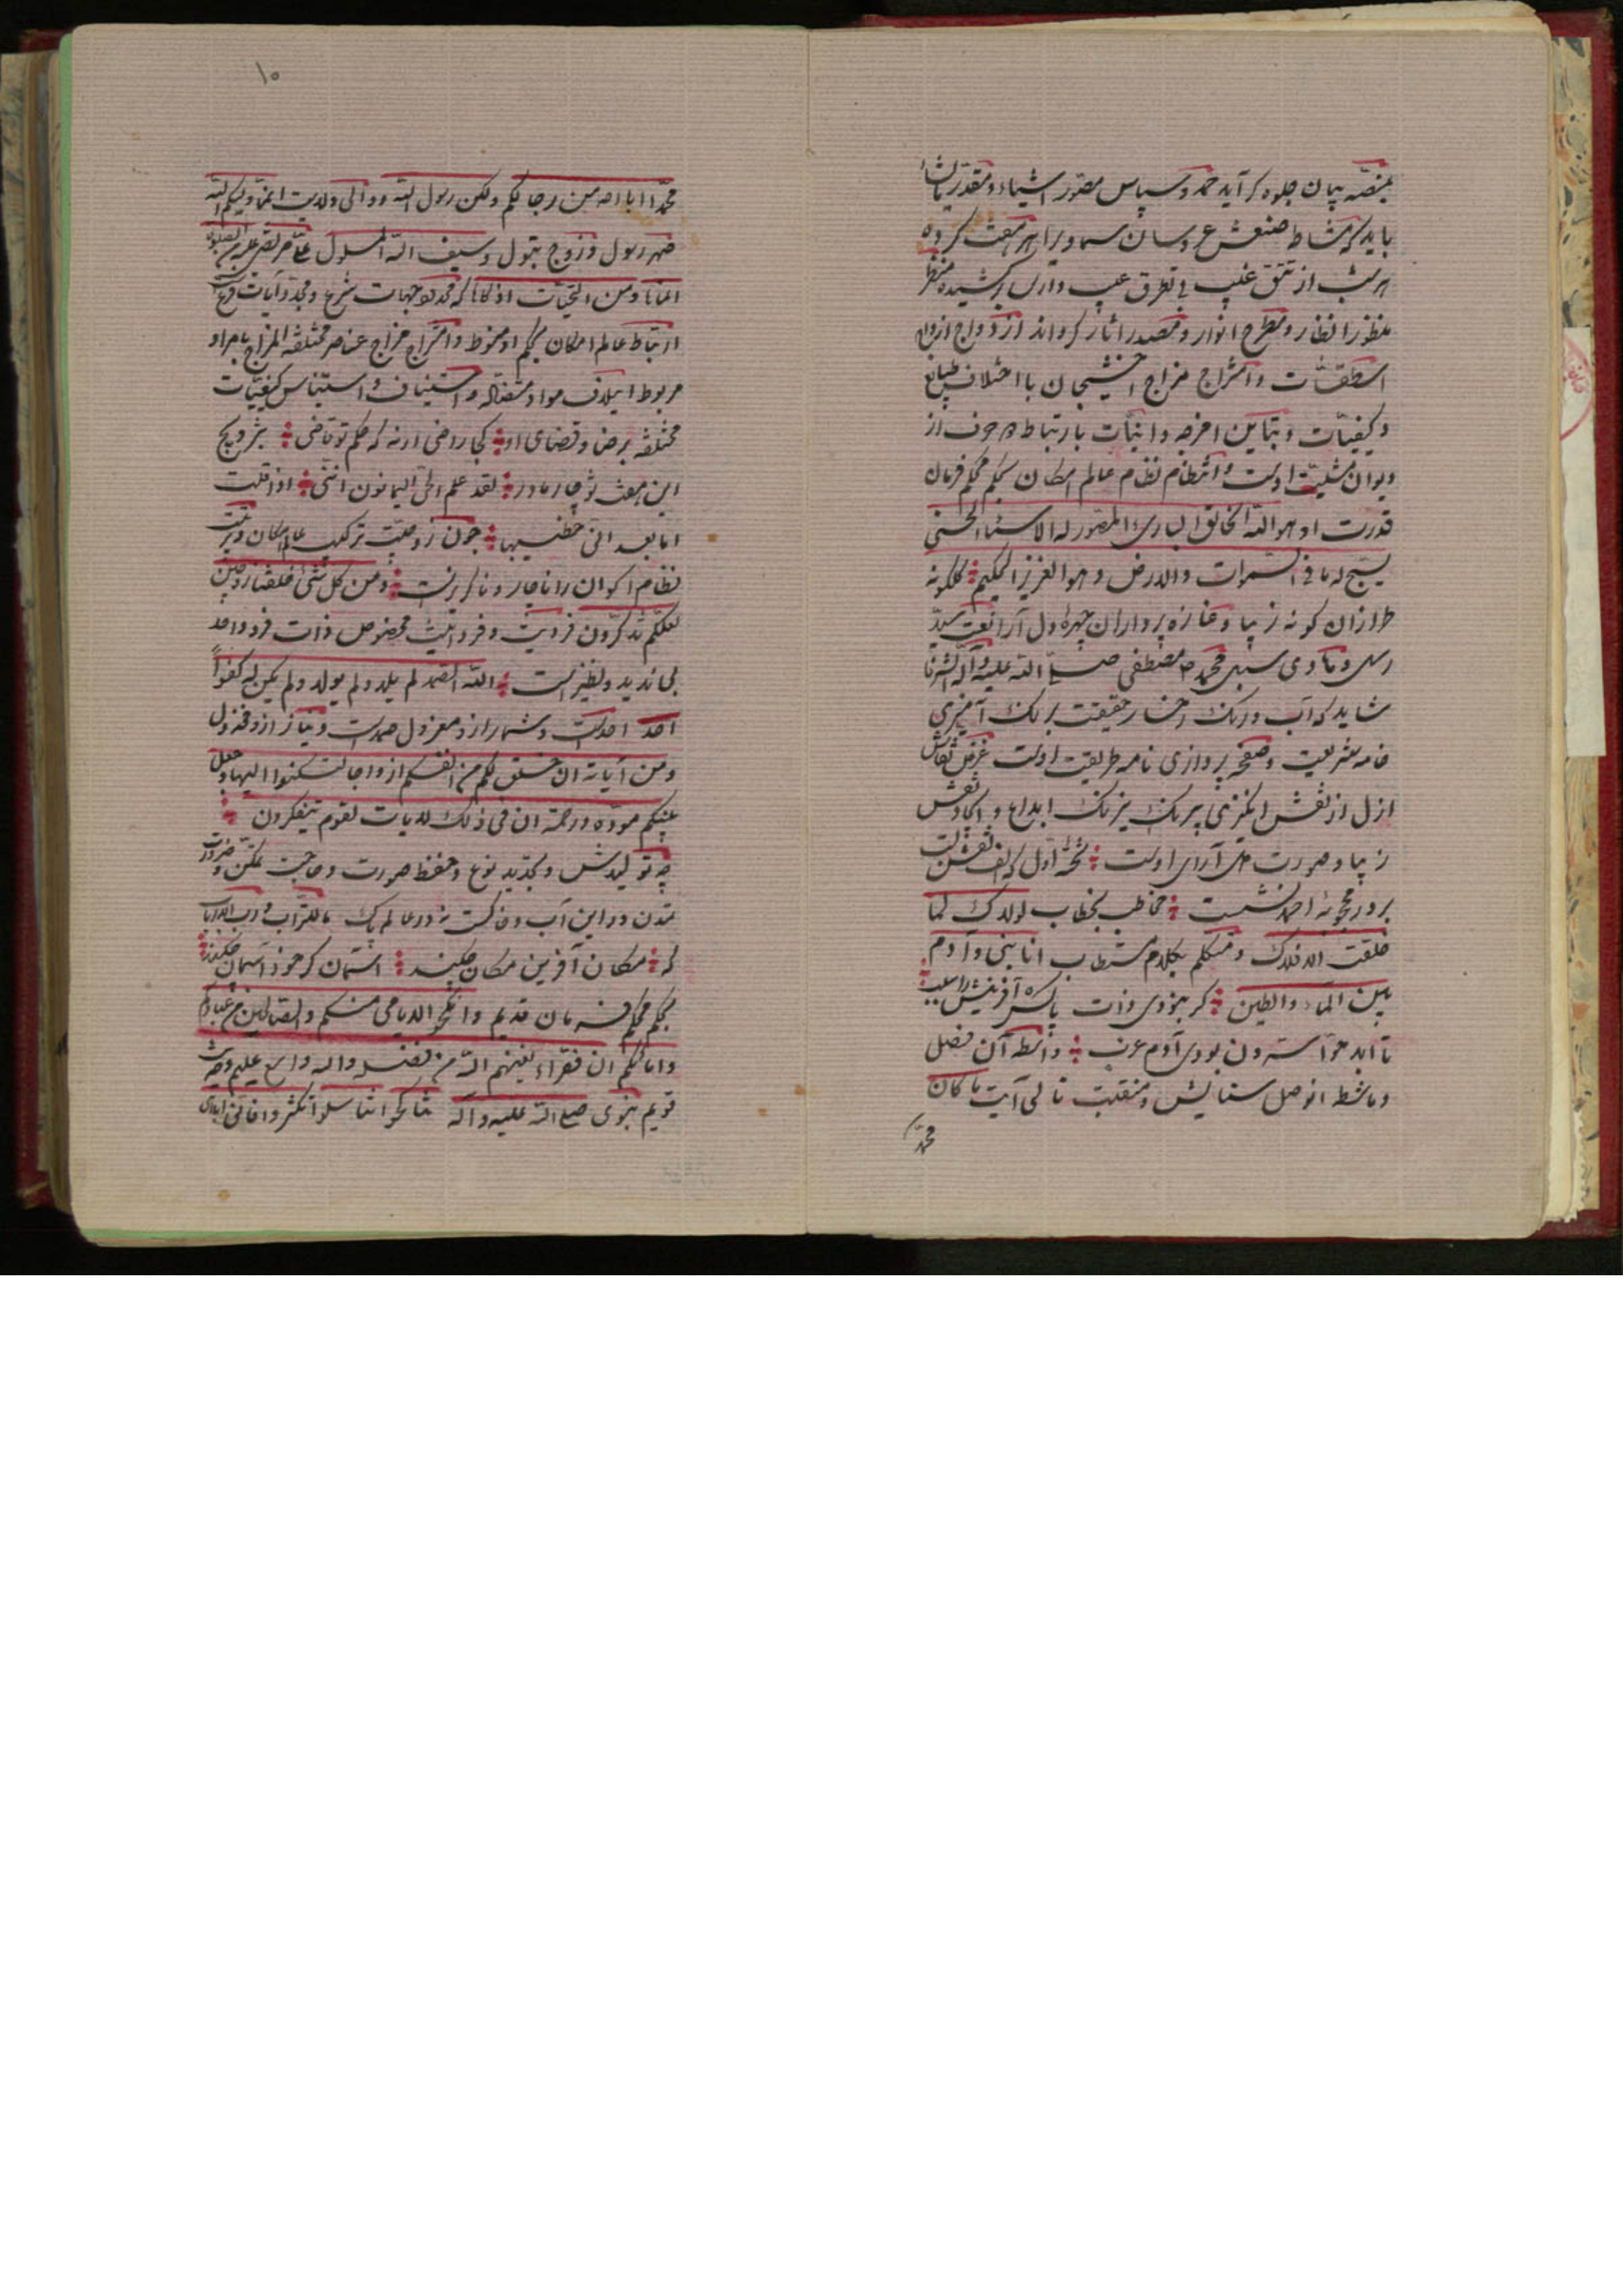 بمنصّه بیان جلوه گر آید حمد و سپاس مصوّر اشیاء و مقدّر یاشا
باید که مشاط صنعش عروسان سماویرا بهر هفت کرده
هر شب از تتق غیب
منظور انظار و مطرح انوار و مصدر اثار گرداند ازدواج ازواج
اسطقسّات و امتزاج مزاج اخشیجان با اختلاف طبایع
و کیفیّات و تباین امزجه و انیّات بارتباط دو حرف از
دیوان مشیّت اوست و انتظام نظام عالم امکان بحکم محکم فرمان
قدرت او هو اللّه الخالق الباری المصوّر له الاسماء الحسنی
یسبّح له ما فی السّموات والارض و هو العزیز الحکیم گلگونه
طرازان گونه زیبا و غازه پردازان چهره دل آرا نعت سیّد
رسل و هادی سبل محمّد مصطفی صلّی اللّه علیه وآله الشرفا
شاید که آب و رنگ رخسار حقیقت برنگ آمیزی
خامه شریعت و صفحه پردازی نامه طریقت اوست غرض نقاش
ازل از نقش انگیزی بیرنگ نیرنگ ابداع و ایجاد نقش
زیبا و صورت دل آرای اوست تختهٔ اول که الف نقش بست
بر در محجوبهٔ احمد نشست مخاطب بخطاب لولاک لما
خلقت الافلاک و متکلم بکلام مستطاب انا نبی و آدم
بین الماء والطین گر نبودی ذات پاکش آفرینش را سبب
تا ابد حوّا سترون بودی آدم عزب واسطه آن فصل
و ماشطه این وصل ستایش و منقبت تالی آیت ما کان
محمّد
۱۰
محمّد ابا احد من رجالکم ولکن رسول اللّه و والی ولایت انّما ولیکم اللّه
صهر رسول و زوج بتول و سیف اللّه المسلول
المنایا و من التحیّات اذکاها که محدّد جهات شرع و مجدّد آیات فرع
ارتباط عالم امکان بحکم او منوط و امتزاج مزاج عناصر مختلفة المزاج بامر او
مربوط ایتلاف مواد متضادّه و استیناف و استیناس کیفیّات
مختلفه برضا و قضای او کجا راضی ار نه که حکم تو قاضی بتزویج
این هفت شو چار مادر لقد علم الحیّ الیمانون انّنی اذا قلت
امّا بعد انّی خطیبها چون زوجیّت ترکیب عالم امکان و ترتیب
نظام اکوان را ناچار و ناگزیر است و من کل شئ خلقنا زوجین
لعلّکم تذکّرون فردیت و فردانیّت مخصوص ذات فرد واحد
بی ندید و نظیر است اللّه الصّمد لم یلد ولم یولد ولم یکن له کفواً
احد احدیّت و شمار ازو معزول صمدیّت و نیاز ازو مخذول
و من آیاته ان خلق لکم من انفسکم ازواجا لتسکنوا الیها و جعل
بینکم مودّة و رحمة ان فی ذلک لایات لقوم یتفکرون
چه تولیدش و تجدید نوع و حفظ صورت و حاجت تمکّن و ضرورت
تمدّن در این آب و خاکست نه در عالم پاک ما للتّراب و ربّ الارباب
که مکان آفرین مکان چکند آسمان گر خود آسمان چکند
بحکم محکم فرمان قدیم وانکحوا الایامی منکم و الصّالحین من عبادکم
وامائکم ان یکونوا فقراء یغنیهم اللّه من فضله واللّه واسع علیم و حدیث
قویم نبوی صلّی اللّه علیه و آله تناکحوا تناسلوا تکثروا فانّی اباهی